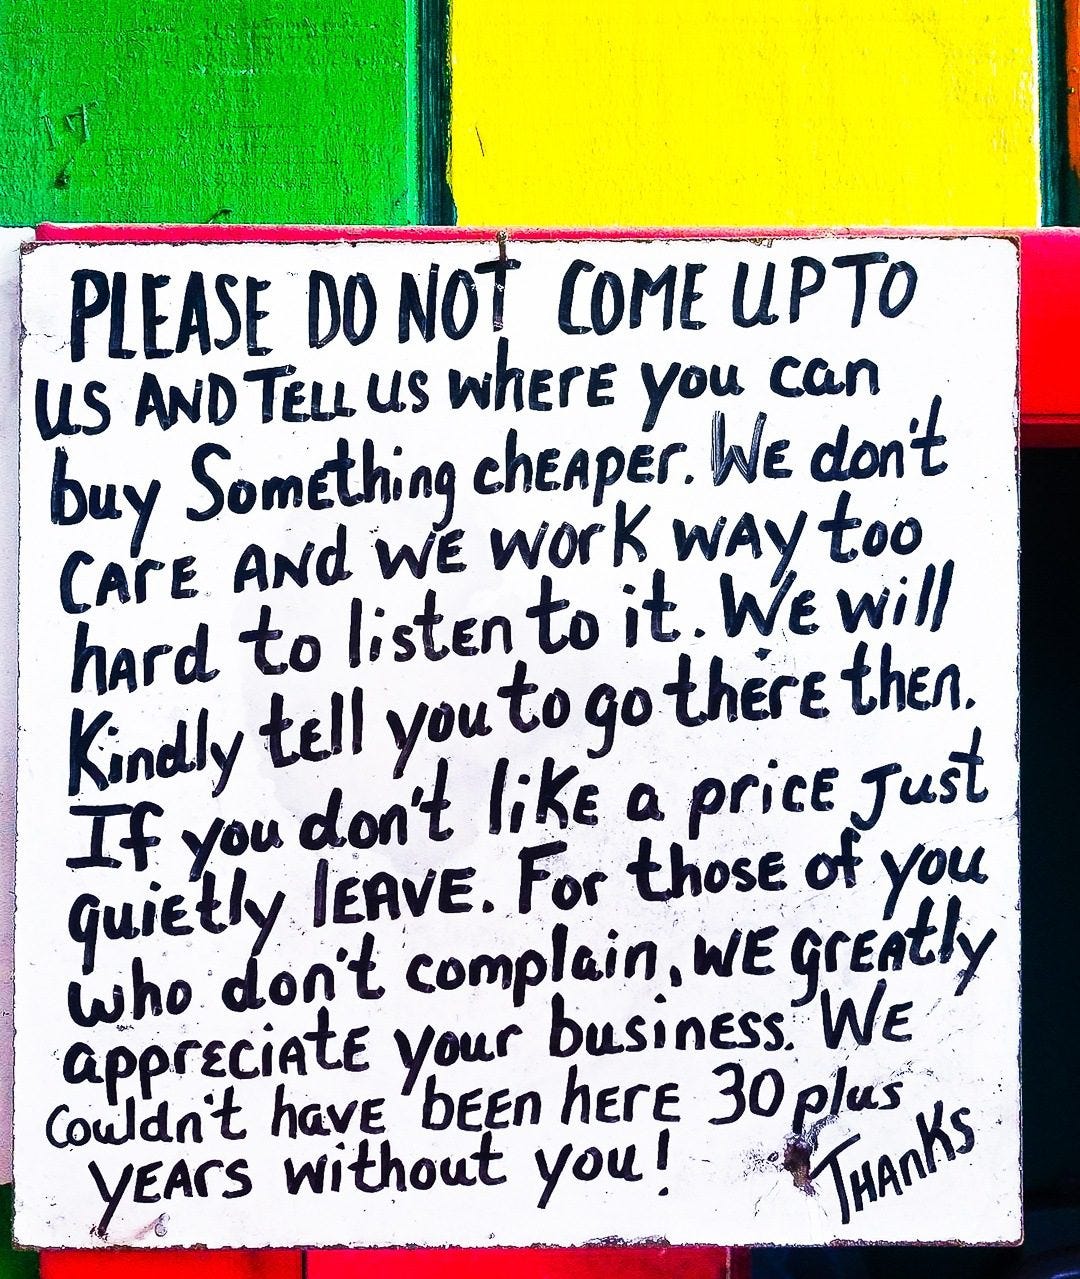 PLEASE DO NOT COME UP TO
US AND TELL US WhErE you can
buy SomEthing chEAPEr. WE don't
CArE ANd WE WOrK WAy too
hArd to listEn to it. WE will
Kindly tell you to go thErE then.
If you don't liKE a pricE Just
quiEtly lEAVE. For thosE of you
who don't complain, WE grEAtly
apprEciAtE your business. WE
Couldn't havE bEEn hErE 30 plus
YEArS without you!
THAnKS